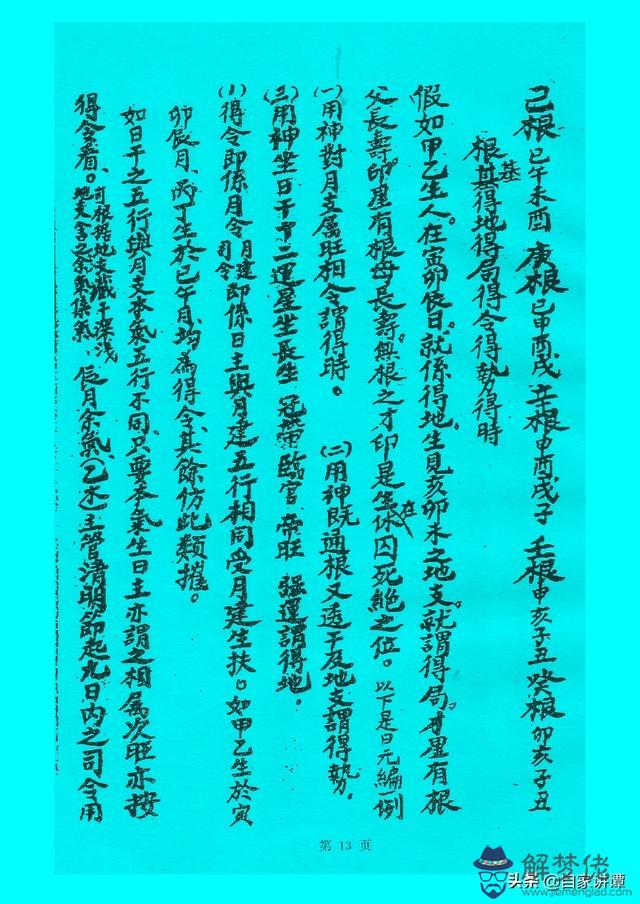 己根 巳午未酉 庚根 巳申酉戌 辛根 申酉戌子 壬根 申亥子丑 癸根 卯亥子丑
根基得地得局得令得勢得時
假如甲乙生人。在寅卯辰日。就係得地。生見亥卯未之地支。就謂得局。才星有根
父長壽。印星有根母長壽。無根之才印是坐在休囚死絕之位。以下是日元編一例
(一)用神對月支属旺相令謂得時。 (二)用神既通根又透干及地支謂得勢。
(三)用神坐日干十二運星坐長生 冠帶 臨官 帝旺 强運謂得地。
(1)得令即係月令月建司令即係日主與月建五行相同受月建生扶。如甲乙生於寅
卯辰月、丙丁生於巳午月、均為得令、其餘仿此類推。
如日干之五行與月支本氣五行不同、只要本氣生日主亦謂之相属次旺亦按
得令看。可根据地支藏干深浅 地支含之余氣 辰月余氣、(乙木)主管清明節起九日内之司令用
第 13 页
解梦佬
www.jiemenglao.com
头条@自家讲谭